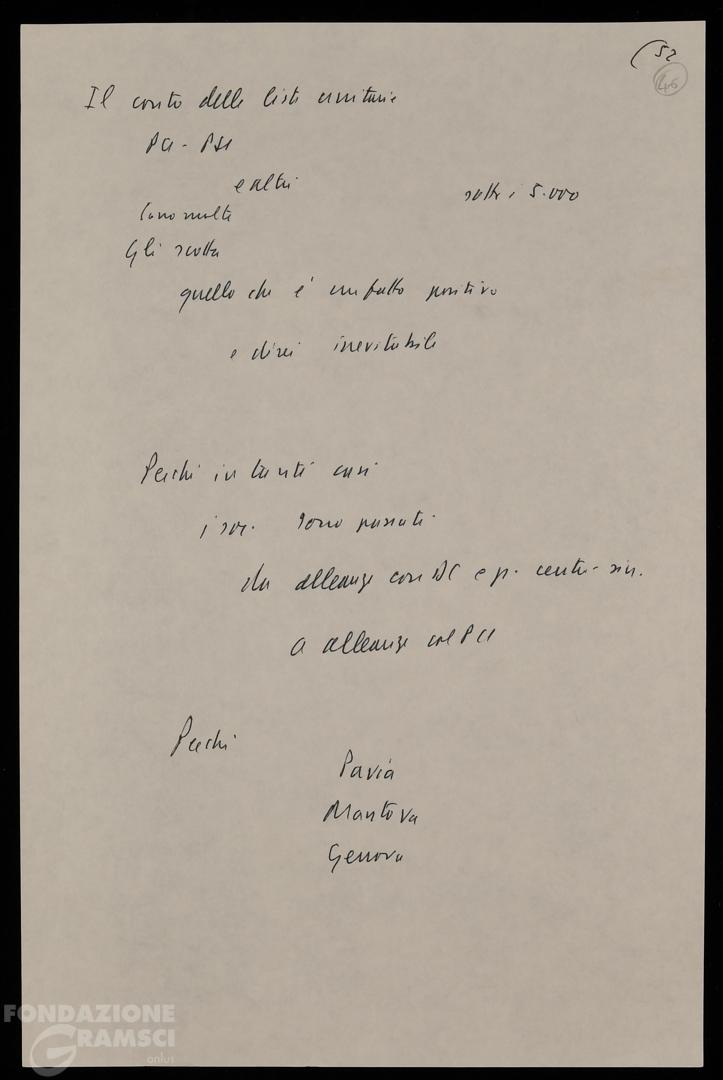 (52
46
Il conto delle liste unitarie
PCI - PSI
e altri
sotto i 5.000
Sono molte
Gli scotta
quello che è un fatto positivo
e direi inevitabile
Perché in tanti casi
i soc. sono passati
da alleanze con DC e p. centro-sin.
a alleanze col PCI
Perché
Pavia
Mantova
Genova
FONDAZIONE
GRAMSCI
onlus